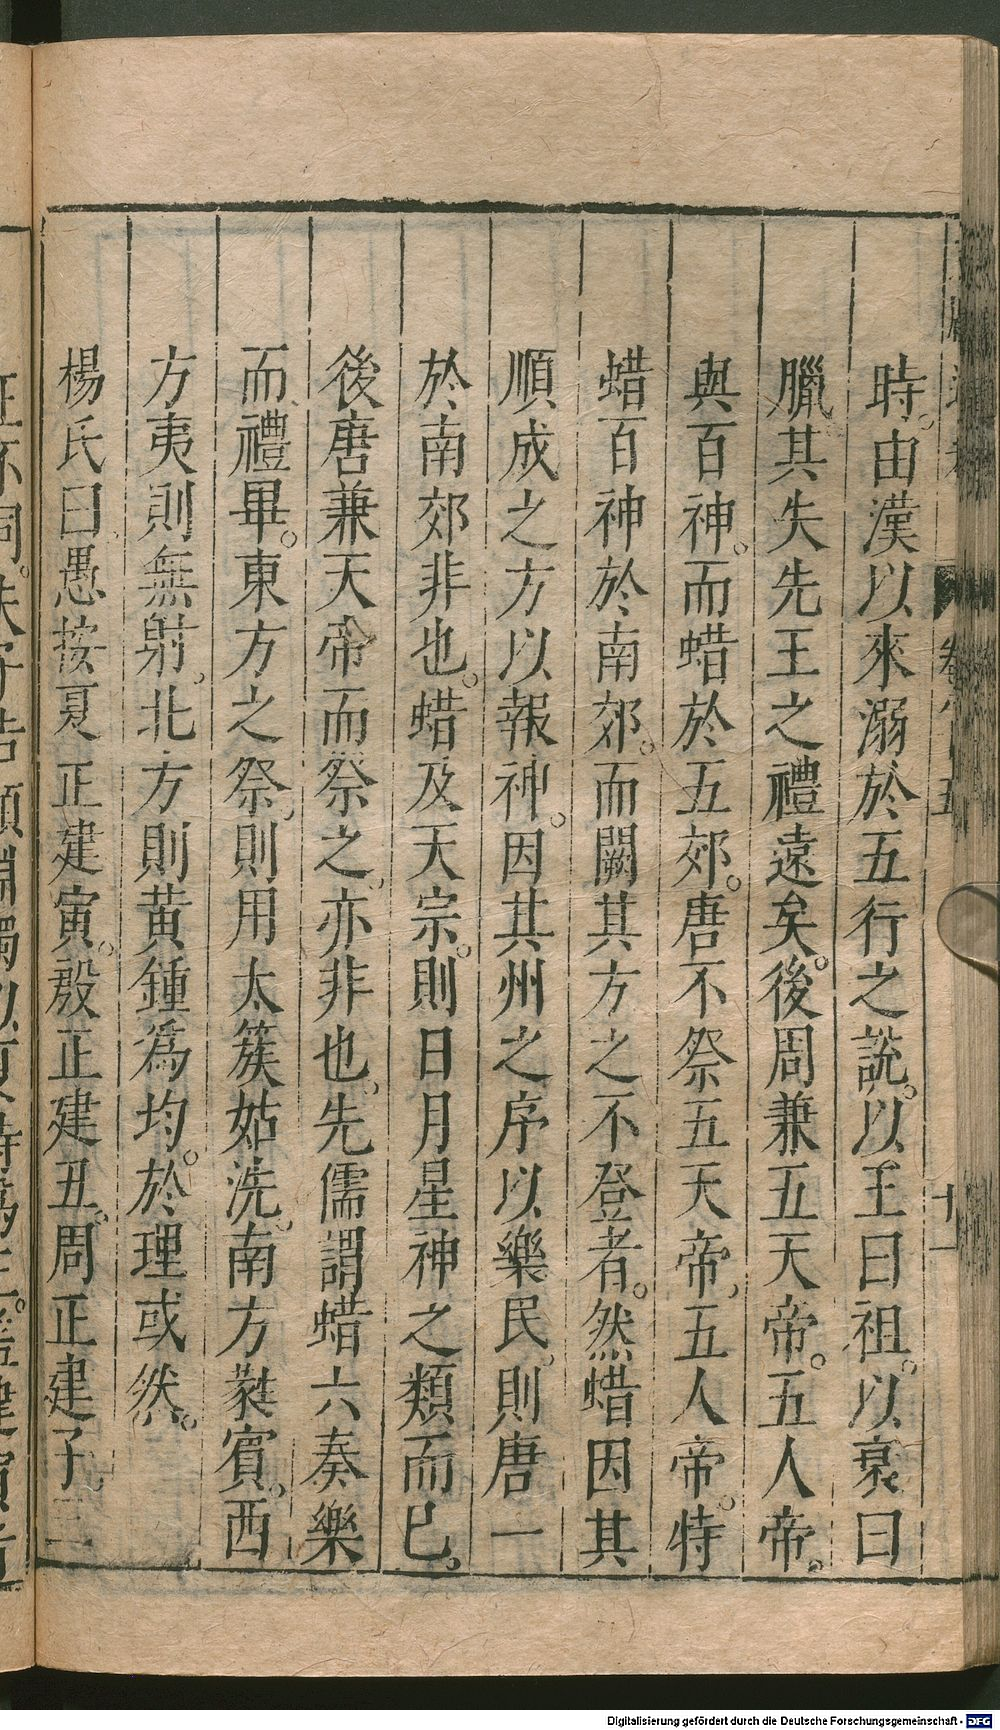 時由漢以來溺於五行之說以王曰祖以衰曰
臘其失先王之禮遠矣後周兼五天帝五人帝
與百神而蜡於五郊唐不祭五天帝五人帝特
蜡百神於南郊而闕其方之不登者然蜡因其
順成之方以報神因其州之序以樂民則唐一
於南郊非也蜡及天宗則日月星神之類而已
後唐兼天帝而祭之亦非也先儒謂蜡六奏樂
而禮畢東方之祭則用太簇姑洗南方蕤賓西
方夷則無射北方則黃鍾為均於理或然
楊氏曰愚按夏正建寅殷正建丑周正建子三
Digitalisierung gefördert durch die Deutsche Forschungsgemeinschaft - DFG